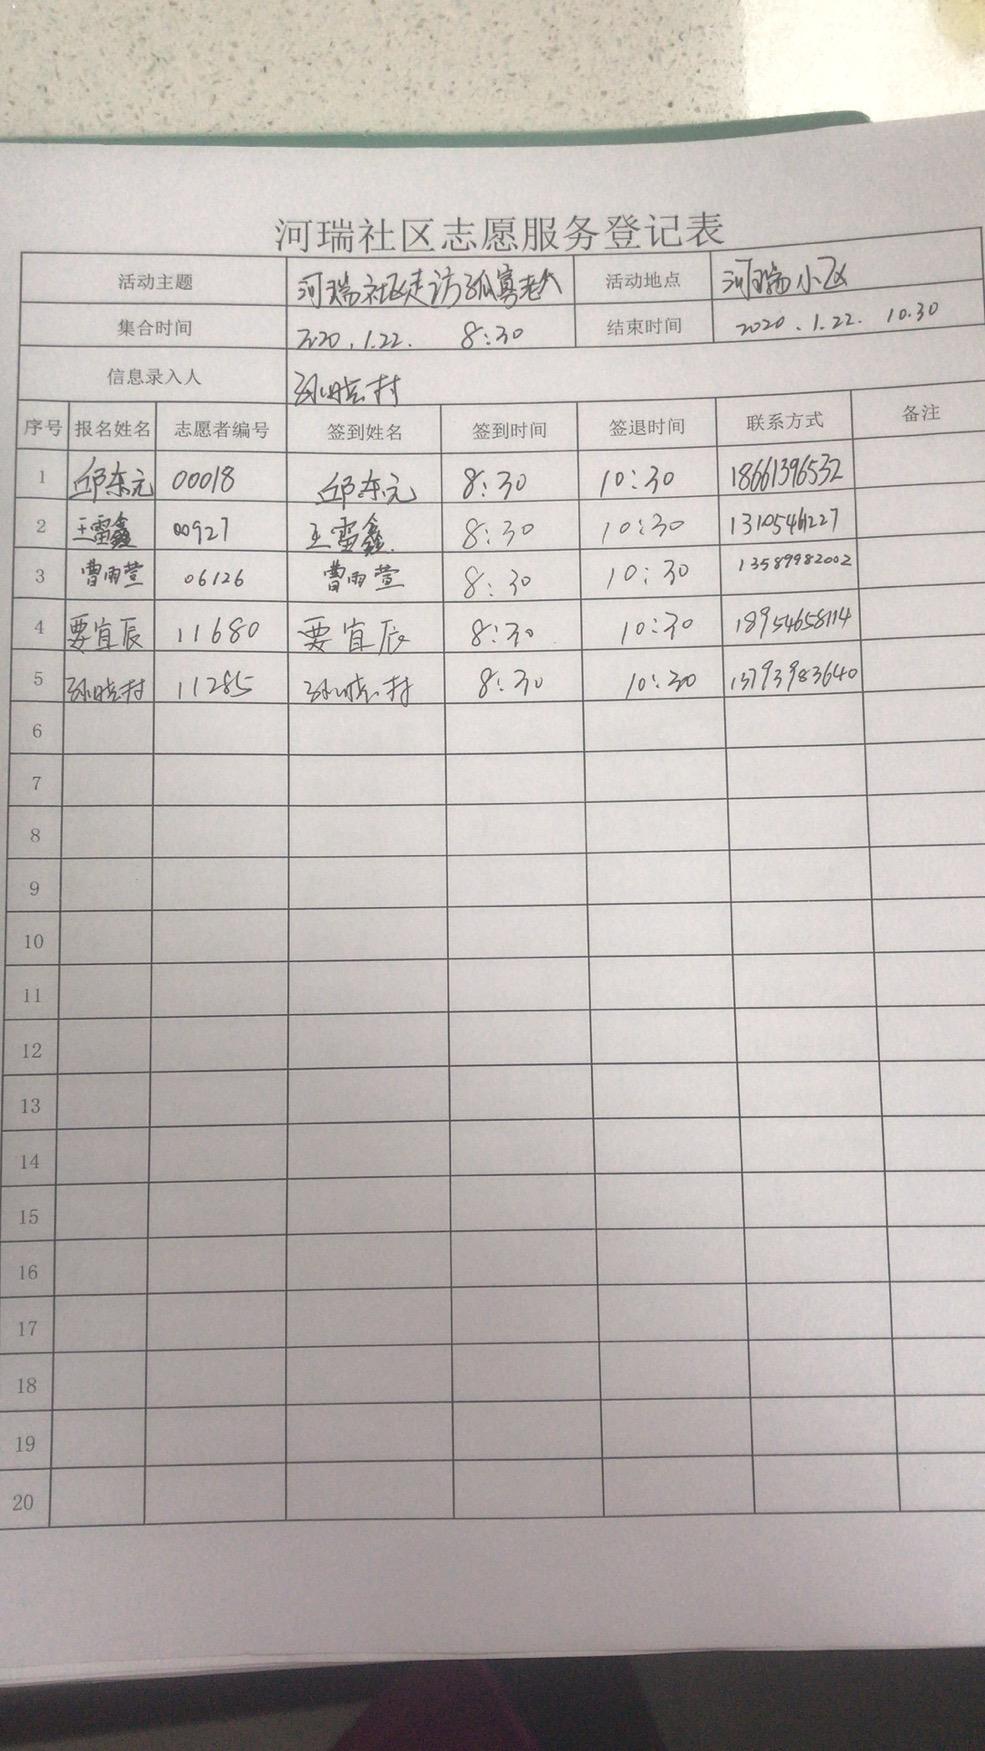 河瑞社区志愿服务登记表
活动主题 河瑞社区走访孤寡老人 活动地点 河瑞小区
集合时间 2020.1.22. 8:30 结束时间 2020.1.22. 10.30
信息录入人 孙晓村
序号 报名姓名 志愿者编号 签到姓名 签到时间 签退时间 联系方式 备注
1 邱东元 00018 邱东元 8:30 10:30 18661396532
2 王雷鑫 00927 王雷鑫 8:30 10:30 1310546227
3 曹雨萱 06126 曹雨萱 8:30 10:30 13589982002
4 要宜辰 11680 要宜辰 8:30 10:30 18954658114
5 孙晓村 11285 孙晓村 8:30 10:30 13793983640
6
7
8
9
10
11
12
13
14
15
16
17
18
19
20